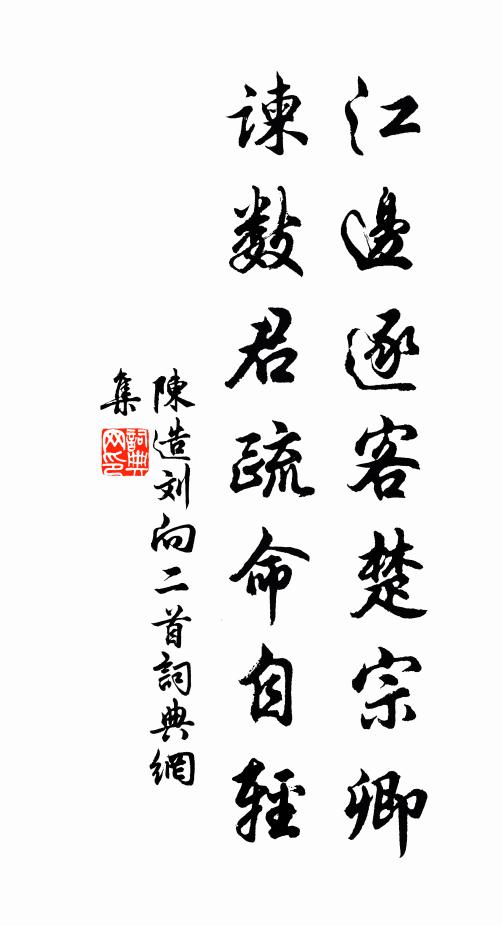 江邊逐客楚宗卿
諫数君疏命自輕
陳造刘向二首詞典網
集
詞典网印